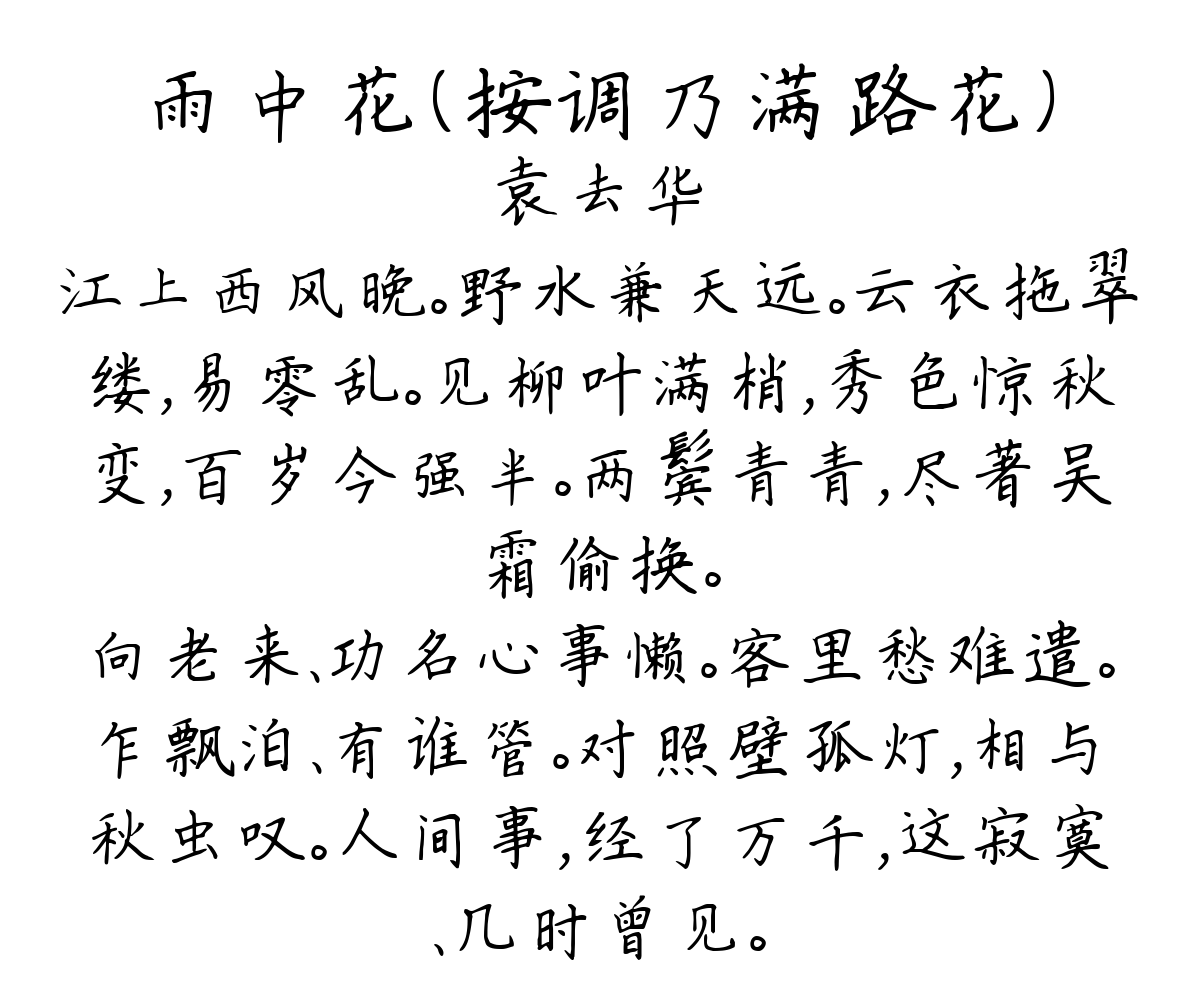 雨中花(按调乃满路花)
袁去华
江上西风晚。野水兼天远。云衣拖翠
缕,易零乱。见柳叶满梢,秀色惊秋
变,百岁今强半。两鬓青青,尽著吴
霜偷换。
向老来、功名心事懒。客里愁难遣。
乍飘泊、有谁管。对照壁孤灯,相与
秋虫叹。人间事,经了万千,这寂寞
、几时曾见。